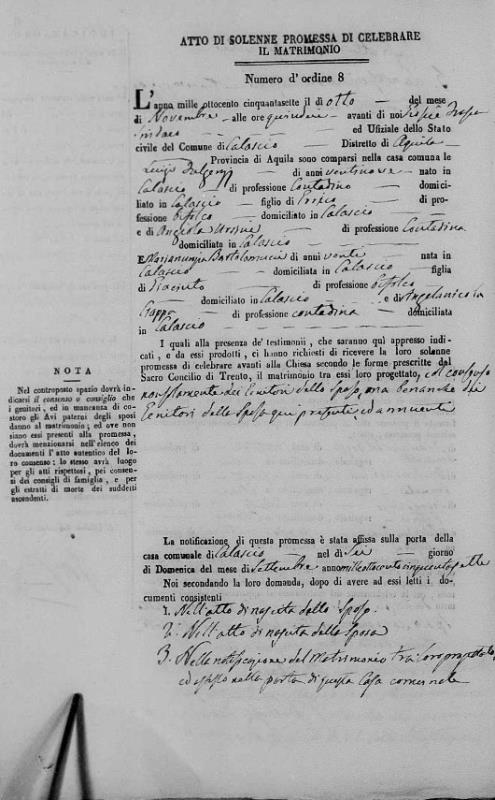 ATTO DI SOLENNE PROMESSA DI CELEBRARE
IL MATRIMONIO
Numero d'ordine 8
L'anno mille ottocento cinquantasette il dì otto — del mese
di Novembre — alle ore quindici — avanti di noi
Sindaco — ed Ufiziale dello Stato
civile del Comune di Calascio — Distretto di Aquila —
Provincia di Aquila sono comparsi nella casa comunale
Luigi — di anni ventinove — nato in
Calascio — di professione Contadino — domici-
liato in Calascio — figlio di — di pro-
fessione bifolco — domiciliato in Calascio —
e di Angiola — di professione Contadina
domiciliata in Calascio —
E Mariannunzia Bartolomucci di anni venti — nata in
Calascio — domiciliata in Calascio — figlia
di Giacinto — di professione bifolco
— domiciliato in Calascio — e di Angelanicola
— di professione contadina — domiciliata
in Calascio —
I quali alla presenza de' testimonii, che saranno quì appresso indi-
cati, e da essi prodotti, ci hanno richiesti di ricevere la loro solenne
promessa di celebrare avanti alla Chiesa secondo le forme prescritte dal
Sacro Concilio di Trento, il matrimonio tra essi loro progettato, col consenso
non solamente dei Genitori dello Sposo, ma benanche dei
Genitori della Sposa qui presenti, ed annuenti
NOTA
Nel controposto spazio dovrà in-
dicarsi il consenso o consiglio che
i genitori, ed in mancanza di co-
storo gli Avi paterni degli sposi
danno al matrimonio; ed ove non
siano essi presenti alla promessa,
dovrà menzionarsi nell'elenco dei
documenti l'atto autentico del lo-
ro consenso: lo stesso avrà luogo
per gli atti rispettosi, pei consen-
si dei consigli di famiglia, e per
gli estratti di morte dei suddetti
ascendenti.
La notificazione di questa promessa è stata affissa sulla porta della
casa comunale di Calascio — nel dì sei — giorno
di Domenica del mese di Settembre anno milleottocentocinquantasette
Noi secondando la loro domanda, dopo di avere ad essi letti i do-
cumenti consistenti
1. Nell'atto di nascita dello Sposo.
2. Nell'atto di nascita della Sposa
3. Nella notificazione del Matrimonio tra loro progettato,
ed affisso nella porta di questa Casa comunale